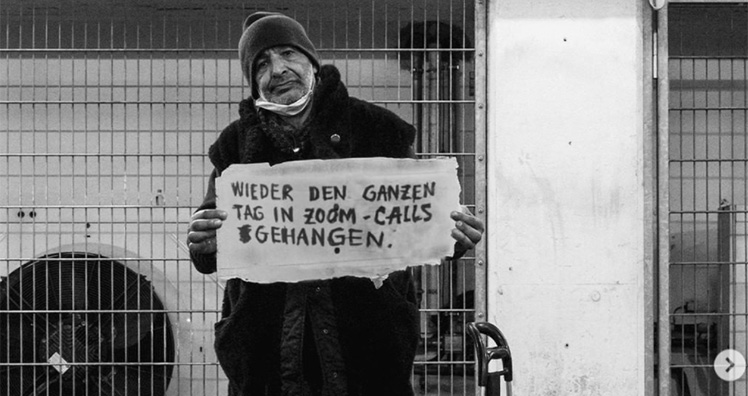 WIEDER DEN GANZEN
TAG IN ZOOM-CALLS
GEHANGEN.